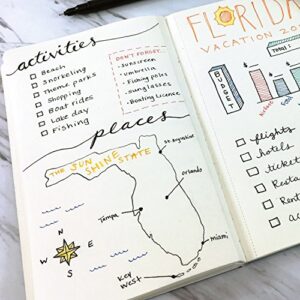 activities
Beach
Snorkeling
Theme parks
Shopping
Boat rides
Lake day
Fishing
DON'T FORGET...
-sunscreen
-umbrella
-Fishing poles
-sunglasses
-Boating Licence
places
THE SUN
SHINE STATE
St. Augustine
Orlando
Tampa
Miami
Key
West
N
W
E
S
FLORIDA
VACATION 20
BUDGET
flights
hotels
ticket
Resta
Rent